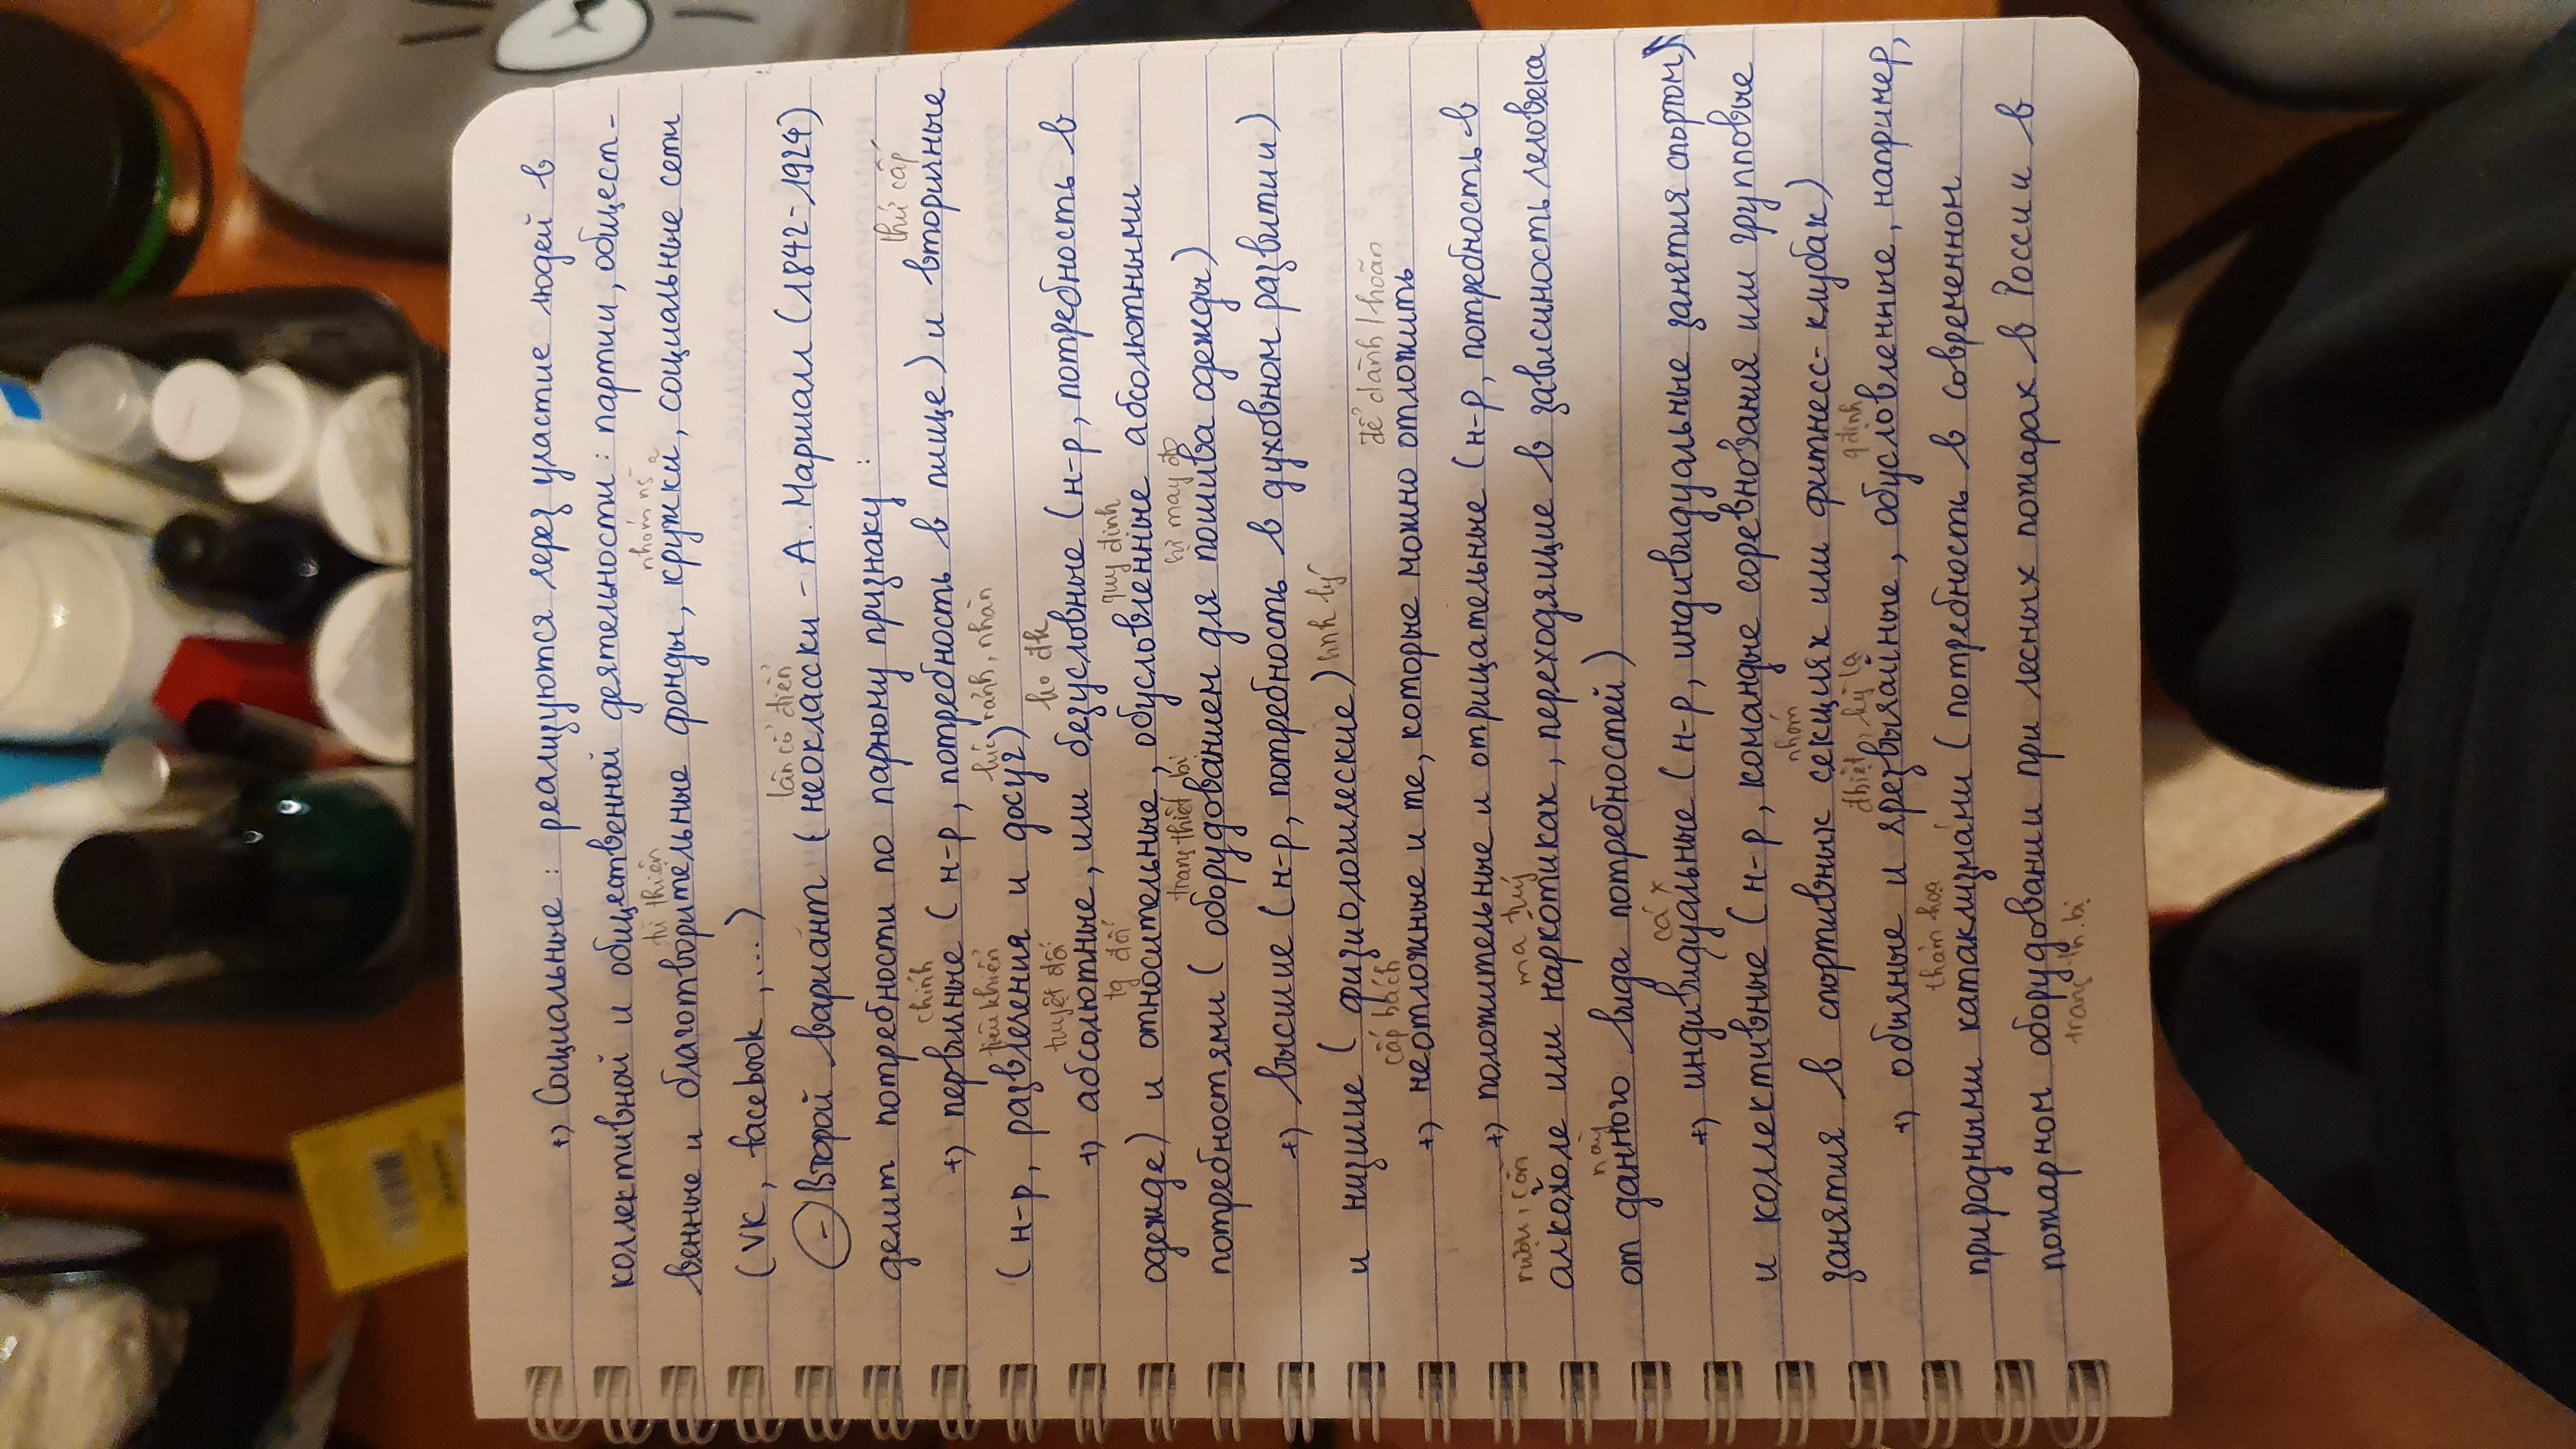 +) Социальные : реализуются через участие людей в
коллективной и общественной деятельности : партии, общест-
từ thiện
nhóm
венные и благотворительные фонды, кружки, социальные сети
(VK, facebook, ...)
tân cổ điển
⊖ Второй вариант (неоклассики - А. Маршалл (1842-1924)
делит потребности по парному признаку :
chính
thứ cấp
+) первичные (н-р, потребность в пище) и вторичные
tiêu khiển
lúc rảnh, nhàn
(н-р, развлечения и досуг)
tuyệt đối
ko đk
+) абсолютные, или безусловные (н-р, потребность в
tg đối
quy định
одежде) и относительные, обусловленные абсолютными
trang thiết bị
sự may đồ
потребностями (оборудованием для пошива одежды)
+) высшие (н-р, потребность в духовном развитии)
sinh lý
и низшие (физиологические)
cấp bách
để dành / hoãn
+) неотложные и те, которые можно отложить
+) положительные и отрицательные (н-р, потребность в
rượu, cồn
ma túy
алкоголе или наркотиках, переходящие в зависимость человека
này
от данного вида потребностей)
+) индивидуальные (н-р, индивидуальные занятия спортом)
и коллективные (н-р, командные соревнования или групповые
nhóm
занятия в спортивных секциях или фитнесс-клубах)
đbiệt, kỳ lạ
qđịnh
+) обычные и чрезвычайные, обусловленные, например,
thảm họa
природными катаклизмами (потребность в современном
пожарном оборудовании при лесных пожарах в России и в
trang th. bị